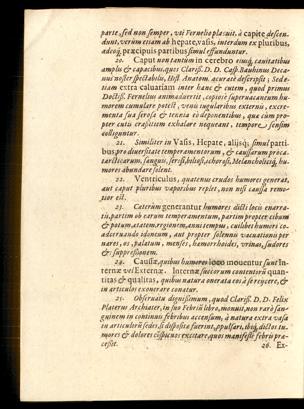 parte, sed non semper, vti Fernelio placuit. à capite descen-
dunt, verùm etiam ab hepate, vasis, interdum ex pluribus,
adeoq́; præcipuis partibus simul effunduntur.
20. Caput non tantùm in cerebro eiusq́; cavitatibus
amplis & capacibus, ques Clariss. D. D. Casp. Bauhinus Deca-
nus noster spectabilis, Hist. Anatom. accuratè descripsit; Sed e-
tiam extra calvariam inter hanc & cutem, quod primus
Doctiss. Fernelius animadvertit, copiosè supervacaneum hu-
morem cumulare potest, venis iugularibus externis, excre-
menta sua serosa & tenvia eò deponentibus, quæ cùm pro-
per cutis crassitiem exhalare nequeant, tempore sensim
colliguntur.
21. Similiter in Vasis, Hepate, alijsq́; simul parti-
bus, pro diversitate temperamentorum, & caussarum proca-
tarcticarum, sanguis, serosi, biliosi, achorosi, Melancholiciq́; hu-
mores abundare solent.
22. Ventriculus, quatenus crudos humores generat,
aut caput pluribus vaporibus replet, non nisi caussa remo-
tior est.
23. Cæterùm generantur humores dicti locis enarra-
tis, partim ob earum temperamentum, partim propter cibum
& potum, ætatem, regionem, anni tempus, cuilibet humori co-
acervando idoneum, aut propter solennis vacuationis per
nares, os, palatum, menses, hæmorrhoides, vrinas, sudores
& suppressionem.
24. Caussæ, quibus humores loco mouentur sunt In-
ternæ vel Externæ. Internæ, succorum contentorū quan-
titas & qualitas, quibus natura onerata eos à se reycere, &
in articulos exonerare conatur.
25. Observatu dignissimum, quod Clariss. D. D. Felix
Platerus Archiater, in suo Febriū libro, monuit, non rarò san-
guinem in continuis febribus accensum, à natura extra vasa
in articulorū sedes, si dispositæ fuerint, propulsari, ibiq́; dictos tu-
mores & dolores cōspicuos excitare, quos manifestè febris præ-
cessit.
26. Ex-